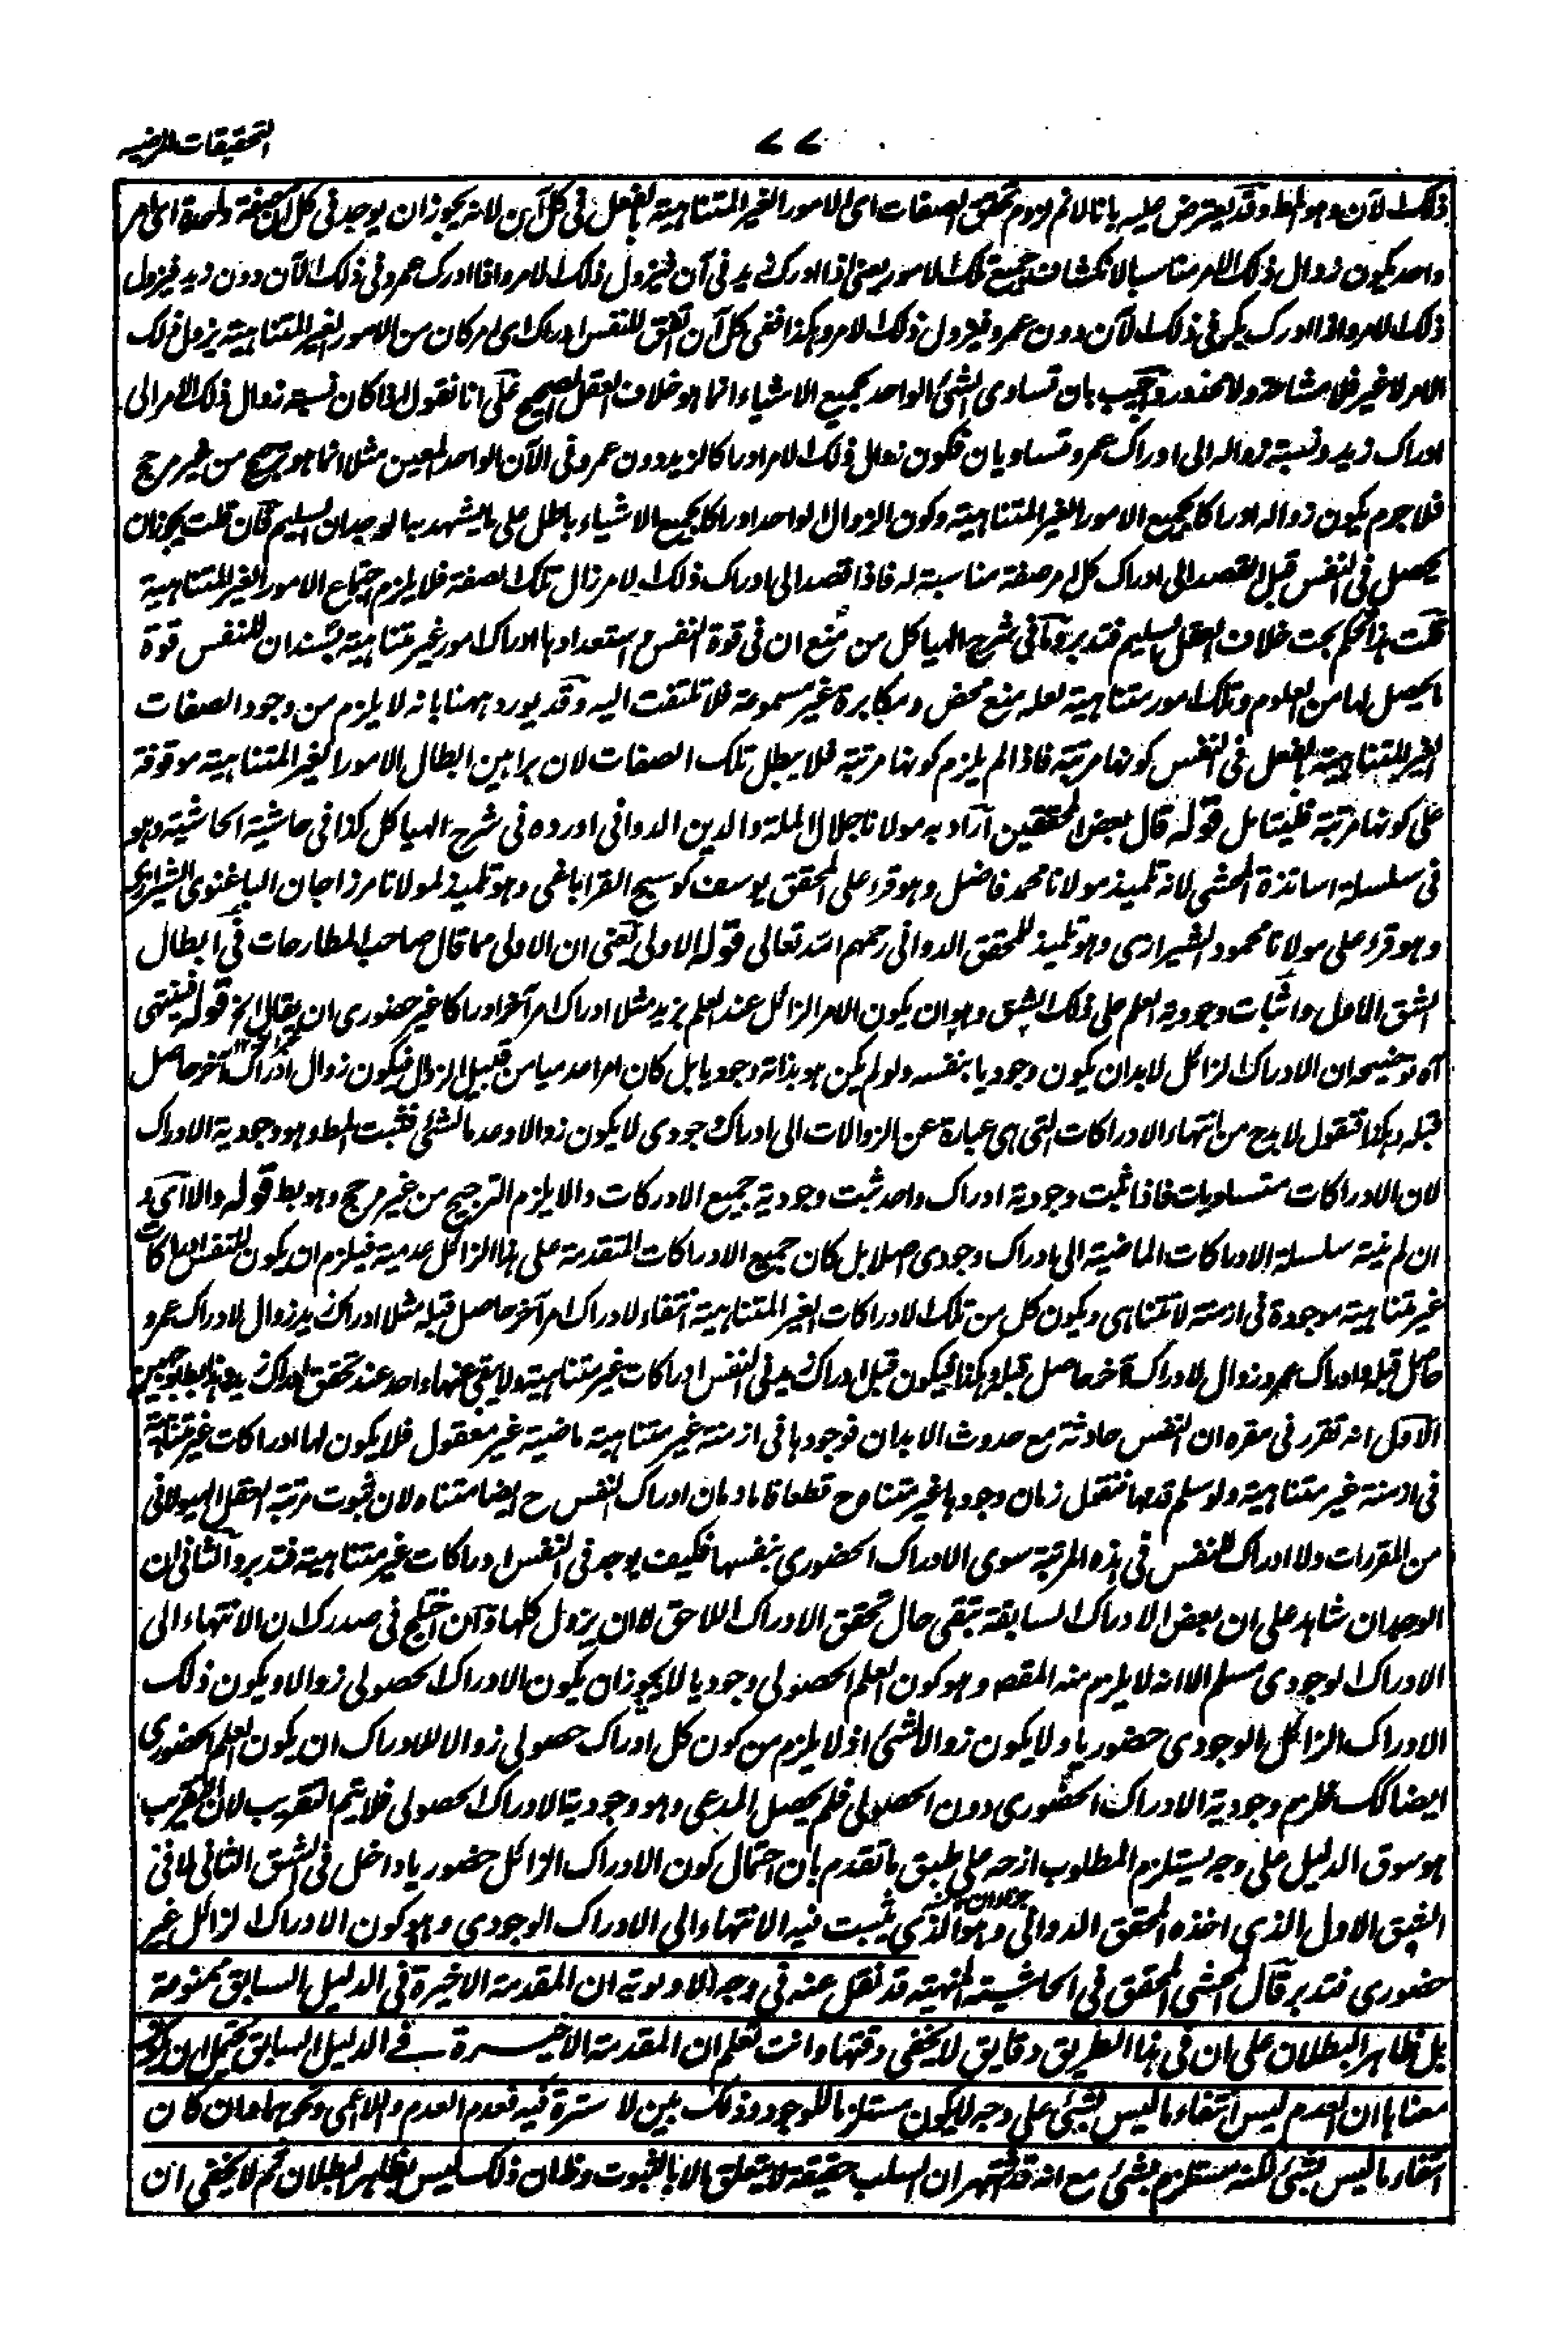 التحقيقات المرضيه
٧٧
ذلك الآن وهو المط وقد يعترض عليه بانا لا نم لزوم تحقق الصفات اى الامور الغير المتناهية بالفعل فى كل آن لانه يجوز ان يوجد فى كل آن صفة واحدة اى امر
واحد يكون زوال ذلك الامر مناسبا لانكشاف جميع تلك الامور يعنى اذا ادرك زيد فى آن فيزول ذلك الامر واذا ادرك عمرو فى ذلك الآن دون زيد فيزول
ذلك الامر واذا ادرك بكر فى ذلك الآن دون عمرو فيزول ذلك الامر وهكذا ففى كل آن تحقق للنفس ادراك اى امر كان من الامور الغير المتناهية يزول ذلك
الامر لا غير فلا مشاحة ولا محذور واجيب بان تساوى الشئ الواحد بجميع الاشياء انما هو خلاف العقل الصحيح على انا نقول اذا كان نسبة زوال ذلك الامر الى
ادراك زيد ونسبة زواله الى ادراك عمرو متساويان فكون زوال ذلك الامر ادراكا لزيد دون عمرو فى الآن الواحد المعين مثلا انما هو ترجيح من غير مرجح
فلا جرم يكون زواله ادراكا بجميع الامور الغير المتناهية وكون الزوال الواحد ادراكا بجميع الاشياء باطل على ما يشهد به الوجدان السليم فان قلت يجوز ان
يحصل فى النفس قبل القصد الى ادراك كل امر صفة مناسبة له فاذا قصد الى ادراك ذلك الامر زال تلك الصفة فلا يلزم اجتماع الامور الغير المتناهية
قلت هذا تحكم بحت خلاف العقل السليم فتدبر وما فى شرح الهياكل من منع ان فى قوة النفس استعدادها ادراك امور غير متناهية بسند ان للنفس قوة
ما يحصل لها من العلوم وتلك امور متناهية لعله منع محض ومكابرة غير مسموعة فلا تلتفت اليه وقد يورد ههنا بانه لا يلزم من وجود الصفات
الغير المتناهية بالفعل فى النفس كونها مرتبة فاذا لم يلزم كونها مرتبة فلا يبطل تلك الصفات لان براهين ابطال الامور الغير المتناهية موقوفة
على كونها مرتبة فليتامل قوله قال بعض المحققين آراد به مولانا جلال الملة والدين الدوانى اورده فى شرح الهياكل كذا فى حاشية الحاشية وهو
فى سلسلة اساتذة المحشى لانه تلميذ مولانا محمد فاضل وهو قرء على المحقق يوسف كوسج القراباغى وهو تلميذ لمولانا مرزا جان الباغنوى الشيرازى
وهو قرء على مولانا محمود الشيرازى وهو تلميذ للمحقق الدوانى رحمهم الله تعالى قوله الاولى يعنى ان الاولى مما قال صاحب المطارحات فى ابطال
الشق الاول واثبات وجودية العلم على ذلك الشق وهو ان يكون الامر الزائل عند العلم بزيد مثلا ادراك امر آخر ادراكا غير حضورى ان يقال الخ قوله فينتهى
آه توضيحه ان الادراك الزائل لابد ان يكون وجوديا بنفسه ولو لم يكن هو بذاته وجوديا بل كان امرا عدميا من قبيل الزوال فيكون زوال ادراك آخر حاصل
قبله وهكذا فنقول لابد ح من انتهاء الادراكات التى هى عبارة عن الزوالات الى ادراك وجودى لا يكون زوالا وعدما لشئ فثبت المط وهو وجودية الادراك
لان الادراكات متساويات فاذا ثبت وجودية ادراك واحد ثبت وجودية جميع الادركات والا يلزم الترجيح من غير مرجح وهو بط قوله والا اى و
ان لم ينته سلسلة الادراكات الماضية الى ادراك وجودى اصلا بل كان جميع الادراكات المتقدمة على هذا الزائل عدمية فيلزم ان يكون للنفس ادراكات
غير متناهية موجودة فى ازمنة لا تتناهى ويكون كل من تلك الادراكات الغير المتناهية انتفاء لادراك امر آخر حاصل قبله مثلا ادراك زيد زوال لادراك عمرو
حاصل قبله وادراك عمرو زوال لادراك آخر حاصل قبله وهكذا فيكون قبل ادراك زيد فى النفس ادراكات غير متناهية ولا يبقى منها واحد عند تحقق ادراك زيد وهذا بط بوجهين
الاول انه تقرر فى مقره ان النفس حادثة مع حدوث الابدان فوجودها فى ازمنة غير متناهية ماضية غير معقول فلا يكون لها ادراكات غير متناهية
فى ازمنة غير متناهية ولو سلم قدمها فنقول زمان وجودها غير متناه ح قطعا فاما زمان ادراك النفس ح ايضا متناه لان ثبوت مرتبة العقل الهيولانى
من المقررات ولا ادراك للنفس فى هذه المرتبة سوى الادراك الحضورى بنفسها فكيف يوجد فى النفس ادراكات غير متناهية فتدبر والثانى ان
الوجدان شاهد على ان بعض الادراك السابقة تبقى حال تحقق الادراك اللاحق لا ان يزول كلها وان اختلج فى صدرك ان الانتهاء الى
الادراك الوجودى مسلم الا انه لا يلزم منه المقصود وهو كون العلم الحصولى وجوديا لا يجوز ان يكون الادراك الحصولى زوالا ويكون ذلك
الادراك الزائل الوجودى حضوريا ولا يكون زوالا لشئ اذ لا يلزم من كون كل ادراك حصولى زوالا للادراك ان يكون العلم الحضورى
ايضا كك فلزم وجودية الادراك الحضورى دون الحصولى فلم يحصل المدعى وهو وجودية الادراك الحصولى فلا يتم التقريب لان التقريب
هو سوق الدليل على وجه يستلزم المطلوب ازحه على طبق ما تقدم بان احتمال كون الادراك الزائل حضوريا داخل فى الشق الثانى لا فى
الشق الاول الذى اخذه المحقق الدوانى وهو الذى يثبت فيه الانتهاء الى الادراك الوجودى وهو كون الادراك الزائل غير
حضورى فتدبر قال المحشى المحقق فى الحاشية المنهية قد نقل عنه فى وجه الاولوية ان المقدمة الاخيرة فى الدليل السابق ممنوعة
بل ظاهر البطلان على ان فى هذا الطريق دقايق لا يخفى دقتها وانت تعلم ان المقدمة الاخيرة فى الدليل السابق يحتمل ان يكون
معناها ان العدم ليس انتفاء ما ليس بشئ على وجه لا يكون مستلزما للوجود وذلك بين لا سترة فيه فعدم العدم واللاعمى ونحوهما وان كان
انتفاء ما ليس بشئ لكنه مستلزم بشئ مع انه قد اشتهر ان السلب حقيقة لا يتعلق الا بالثبوت وظان ذلك ليس بظاهر البطلان ثم لا يخفى ان